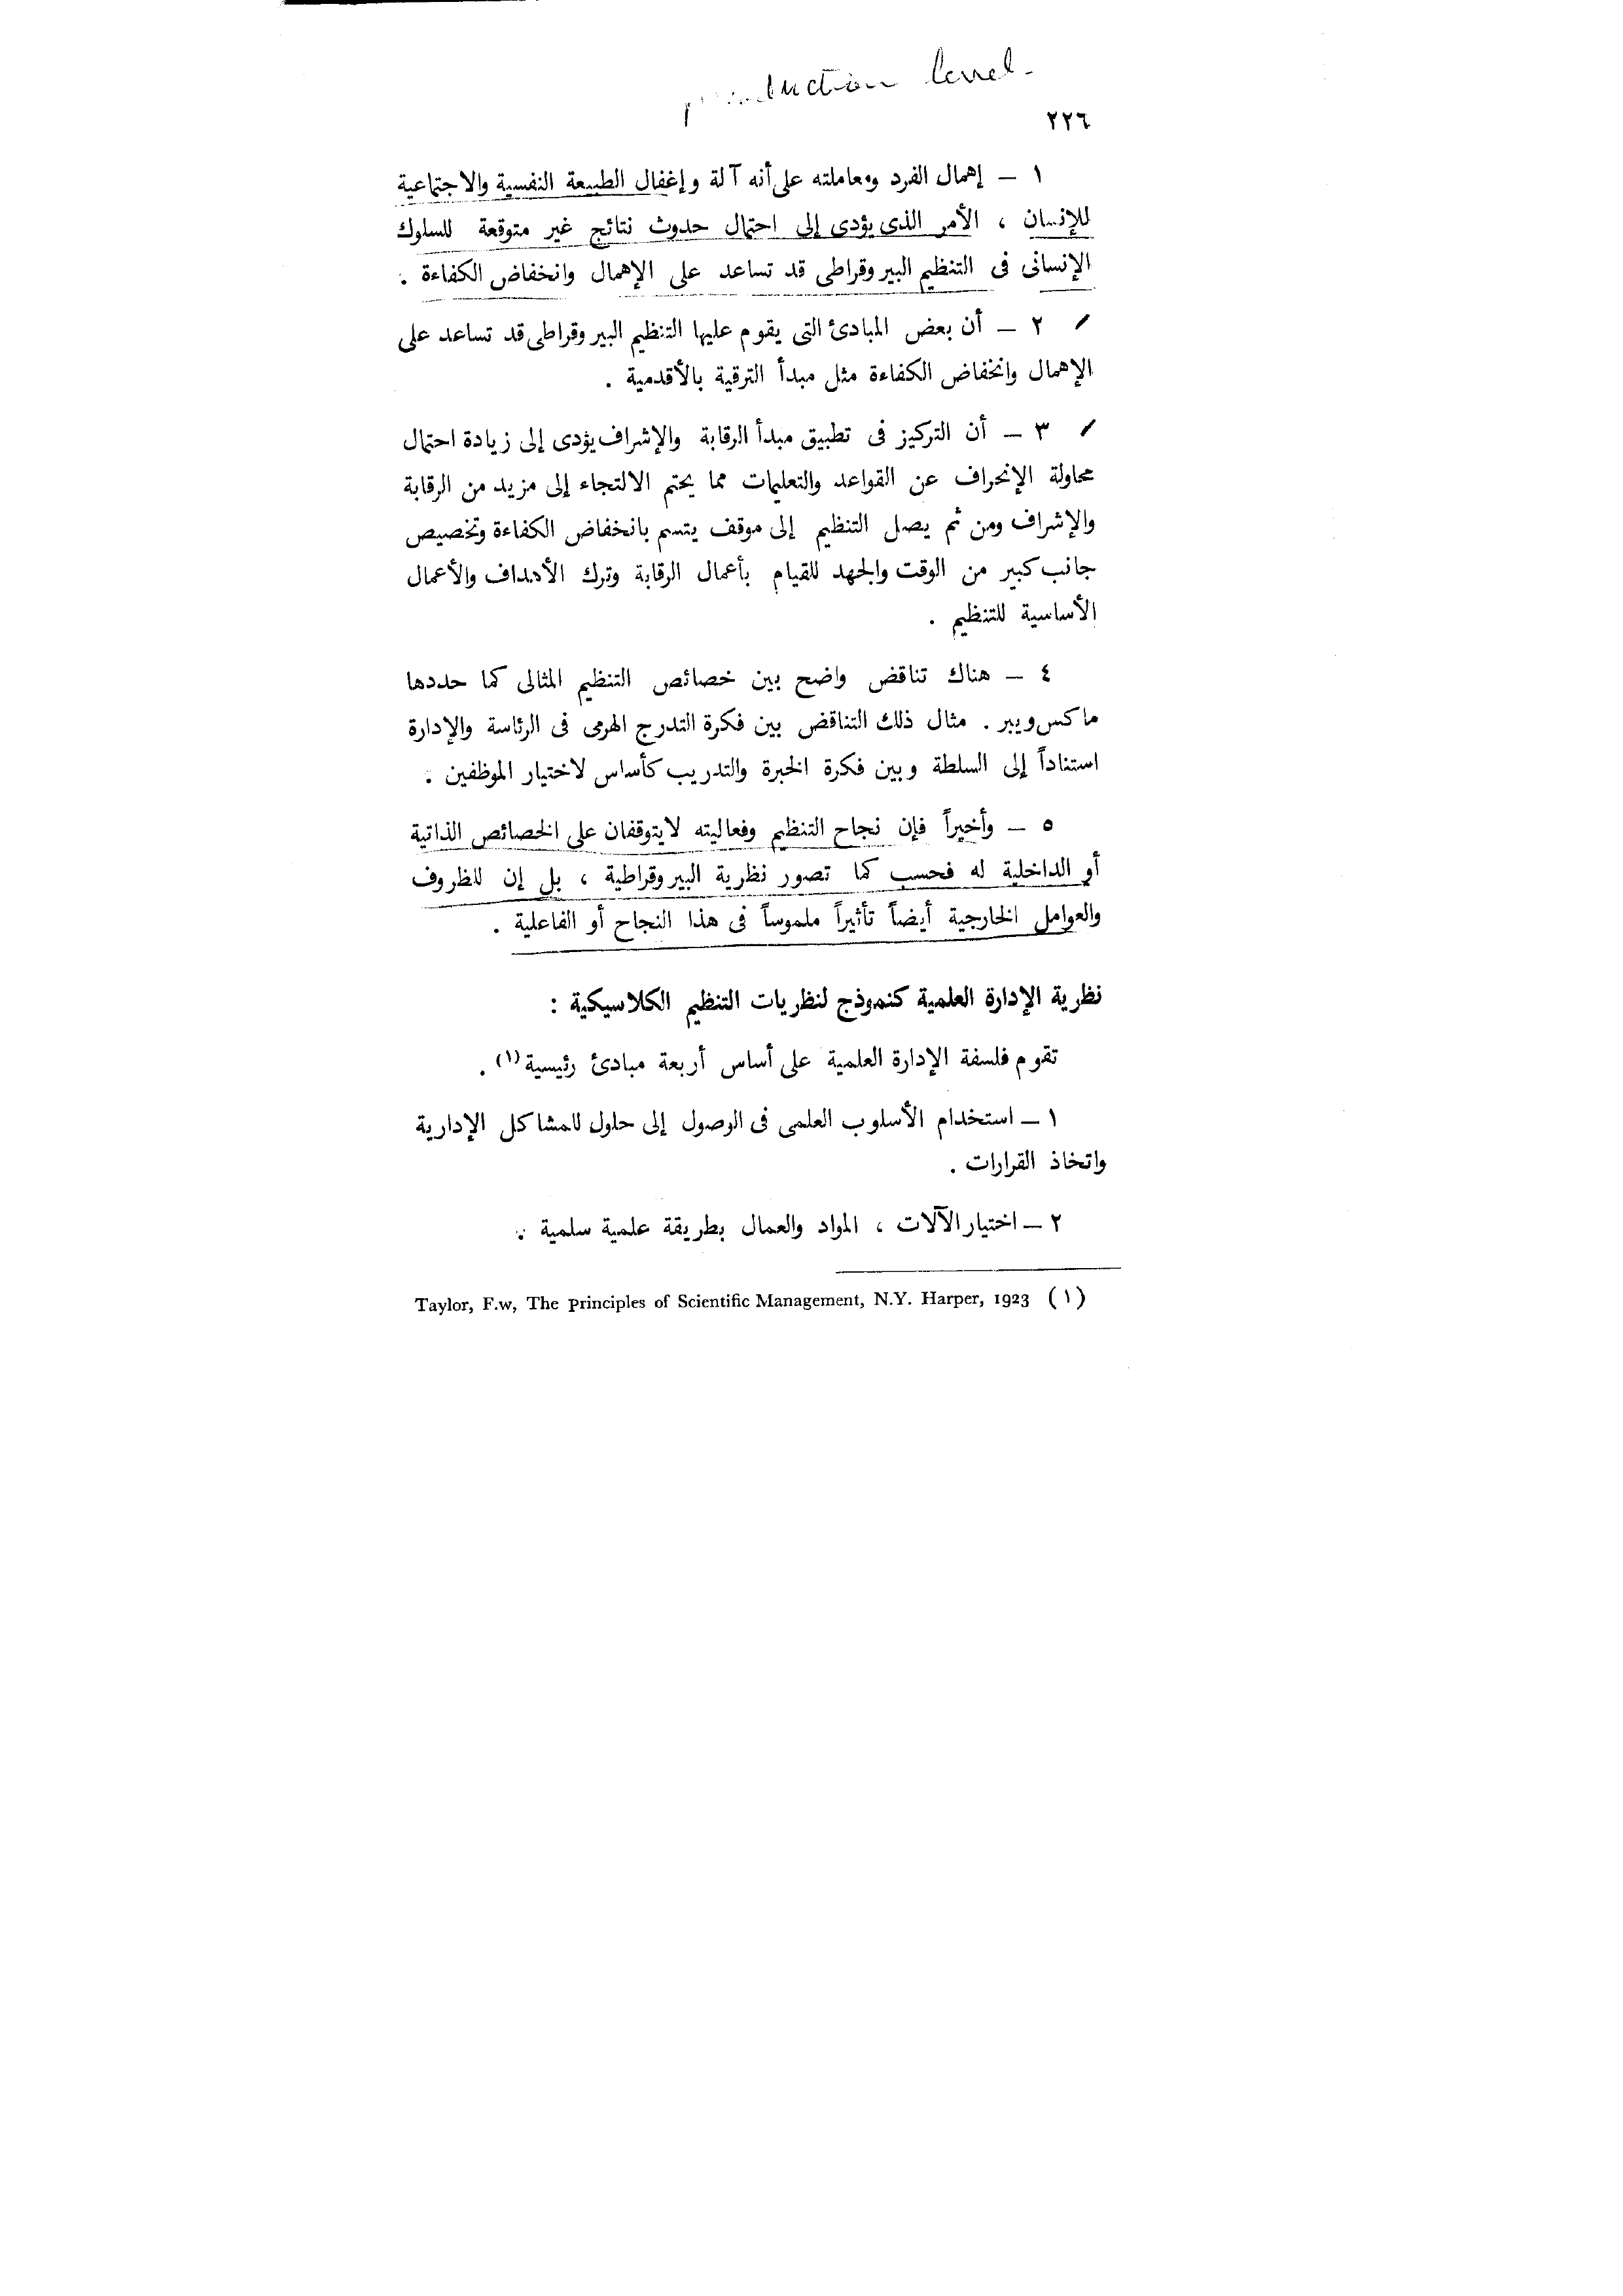 production level -
٢٢٦
١ — إهمال الفرد ومعاملته على أنه آلة وإغفال الطبيعة النفسية والاجتماعية
للإنسان ، الأمر الذى يؤدى إلى احتمال حدوث نتائج غير متوقعة للسلوك
الإنسانى فى التنظيم البيروقراطى قد تساعد على الإهمال وانخفاض الكفاءة .
٢ — أن بعض المبادئ التى يقوم عليها التنظيم البيروقراطى قد تساعد على
الإهمال وانخفاض الكفاءة مثل مبدأ الترقية بالأقدمية .
٣ — أن التركيز فى تطبيق مبدأ الرقابة والإشراف يؤدى إلى زيادة احتمال
محاولة الإنحراف عن القواعد والتعليمات مما يحتم الالتجاء إلى مزيد من الرقابة
والإشراف ومن ثم يصل التنظيم إلى موقف يتسم بانخفاض الكفاءة وتخصيص
جانب كبير من الوقت والجهد للقيام بأعمال الرقابة وترك الأهداف والأعمال
الأساسية للتنظيم .
٤ — هناك تناقض واضح بين خصائص التنظيم المثالى كما حددها
ماكس ويبر . مثال ذلك التناقض بين فكرة التدرج الهرمى فى الرئاسة والإدارة
استناداً إلى السلطة وبين فكرة الخبرة والتدريب كأساس لاختيار الموظفين .
٥ — وأخيراً فإن نجاح التنظيم وفعاليته لايتوقفان على الخصائص الذاتية
أو الداخلية له فحسب كما تصور نظرية البيروقراطية ، بل إن للظروف
والعوامل الخارجية أيضاً تأثيراً ملموساً فى هذا النجاح أو الفاعلية .
نظرية الإدارة العلمية كنموذج لنظريات التنظيم الكلاسيكية :
تقوم فلسفة الإدارة العلمية على أساس أربعة مبادئ رئيسية (١) .
١ — استخدام الأسلوب العلمى فى الوصول إلى حلول للمشاكل الإدارية
واتخاذ القرارات .
٢ — اختيار الآلات ، المواد والعمال بطريقة علمية سلمية .
(١) Taylor, F.w, The principles of Scientific Management, N.Y. Harper, 1923